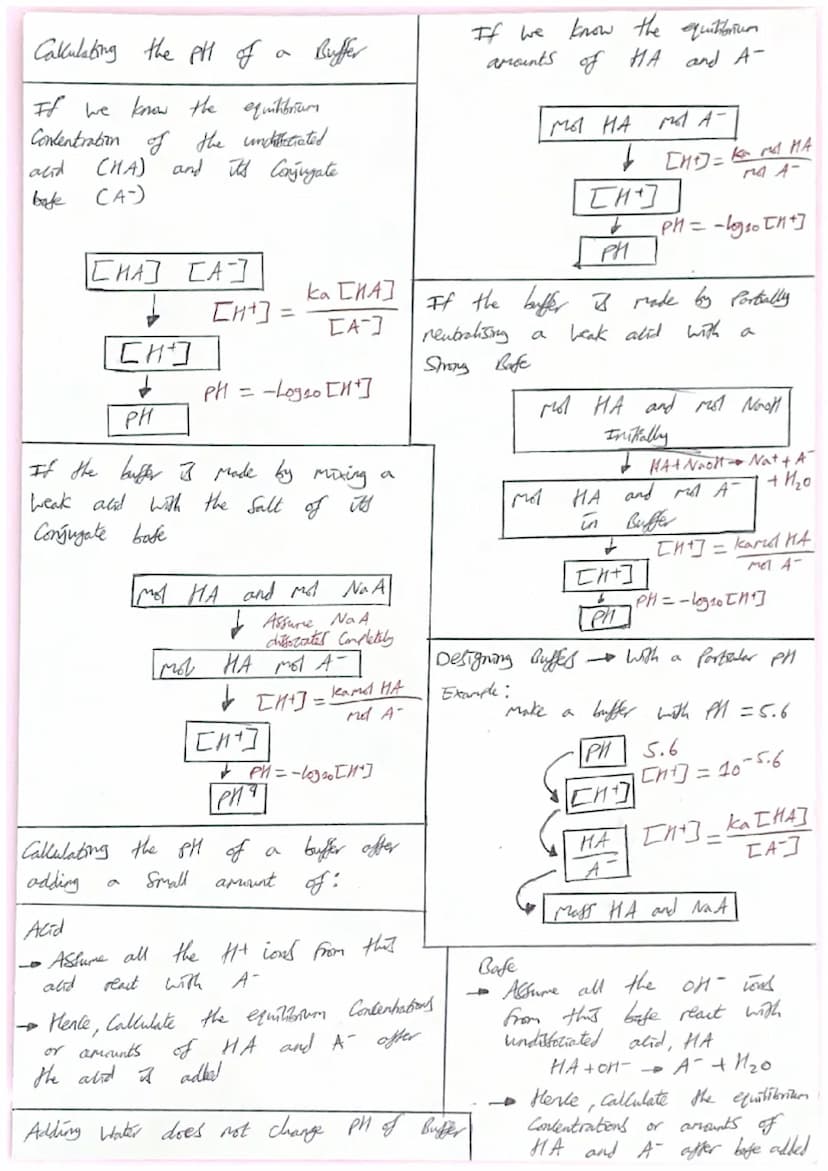 Calculating the pH of a Buffer
If we know the equilibrium
Concentration of the undissociated
acid (HA) and its Conjugate
base (A⁻)
[HA] [A⁻]
[H+] = Ka [HA] / [A⁻]
[H+]
PH = -Log10 [H+]
PH
If we know the equilibrium
amounts of HA and A⁻
mol HA mol A⁻
[H+] = Ka mol HA / mol A⁻
[H+]
PH = -log10 [H+]
PH
If the buffer is made by Partially
neutralising a weak acid with a
Strong Base
mol HA and mol NaOH
Initially
HA+NaOH → Na+ + A⁻
+ H2O
mol HA and mol A⁻
in Buffer
[H+] = Ka mol HA / mol A⁻
[H+]
PH = -log10 [H+]
PH
If the buffer is made by mixing a
weak acid with the salt of its
Conjugate base
mol HA and mol NaA
Assume NaA
dissociates Completely
mol HA mol A⁻
[H+] = Ka mol HA / mol A⁻
[H+]
PH = -log10 [H+]
PH
Designing Buffers → With a Particular pH
Example:
Make a buffer with PH = 5.6
PH 5.6
[H+] = 10^-5.6
[H+]
HA / A⁻
[H+] = Ka [HA] / [A⁻]
Mass HA and NaA
Calculating the pH of a buffer after
adding a Small amount of:
Acid
→ Assume all the H+ ions from this
acid react with A⁻
→ Hence, Calculate the equilibrium Concentrations
or amounts of HA and A⁻ after
the acid is added
Adding Water does not change PH of Buffer
Base
→ Assume all the OH⁻ ions
from this base react with
undissociated acid, HA
HA + OH⁻ → A⁻ + H2O
→ Hence, Calculate the equilibrium
Concentrations or amounts of
HA and A⁻ after base added